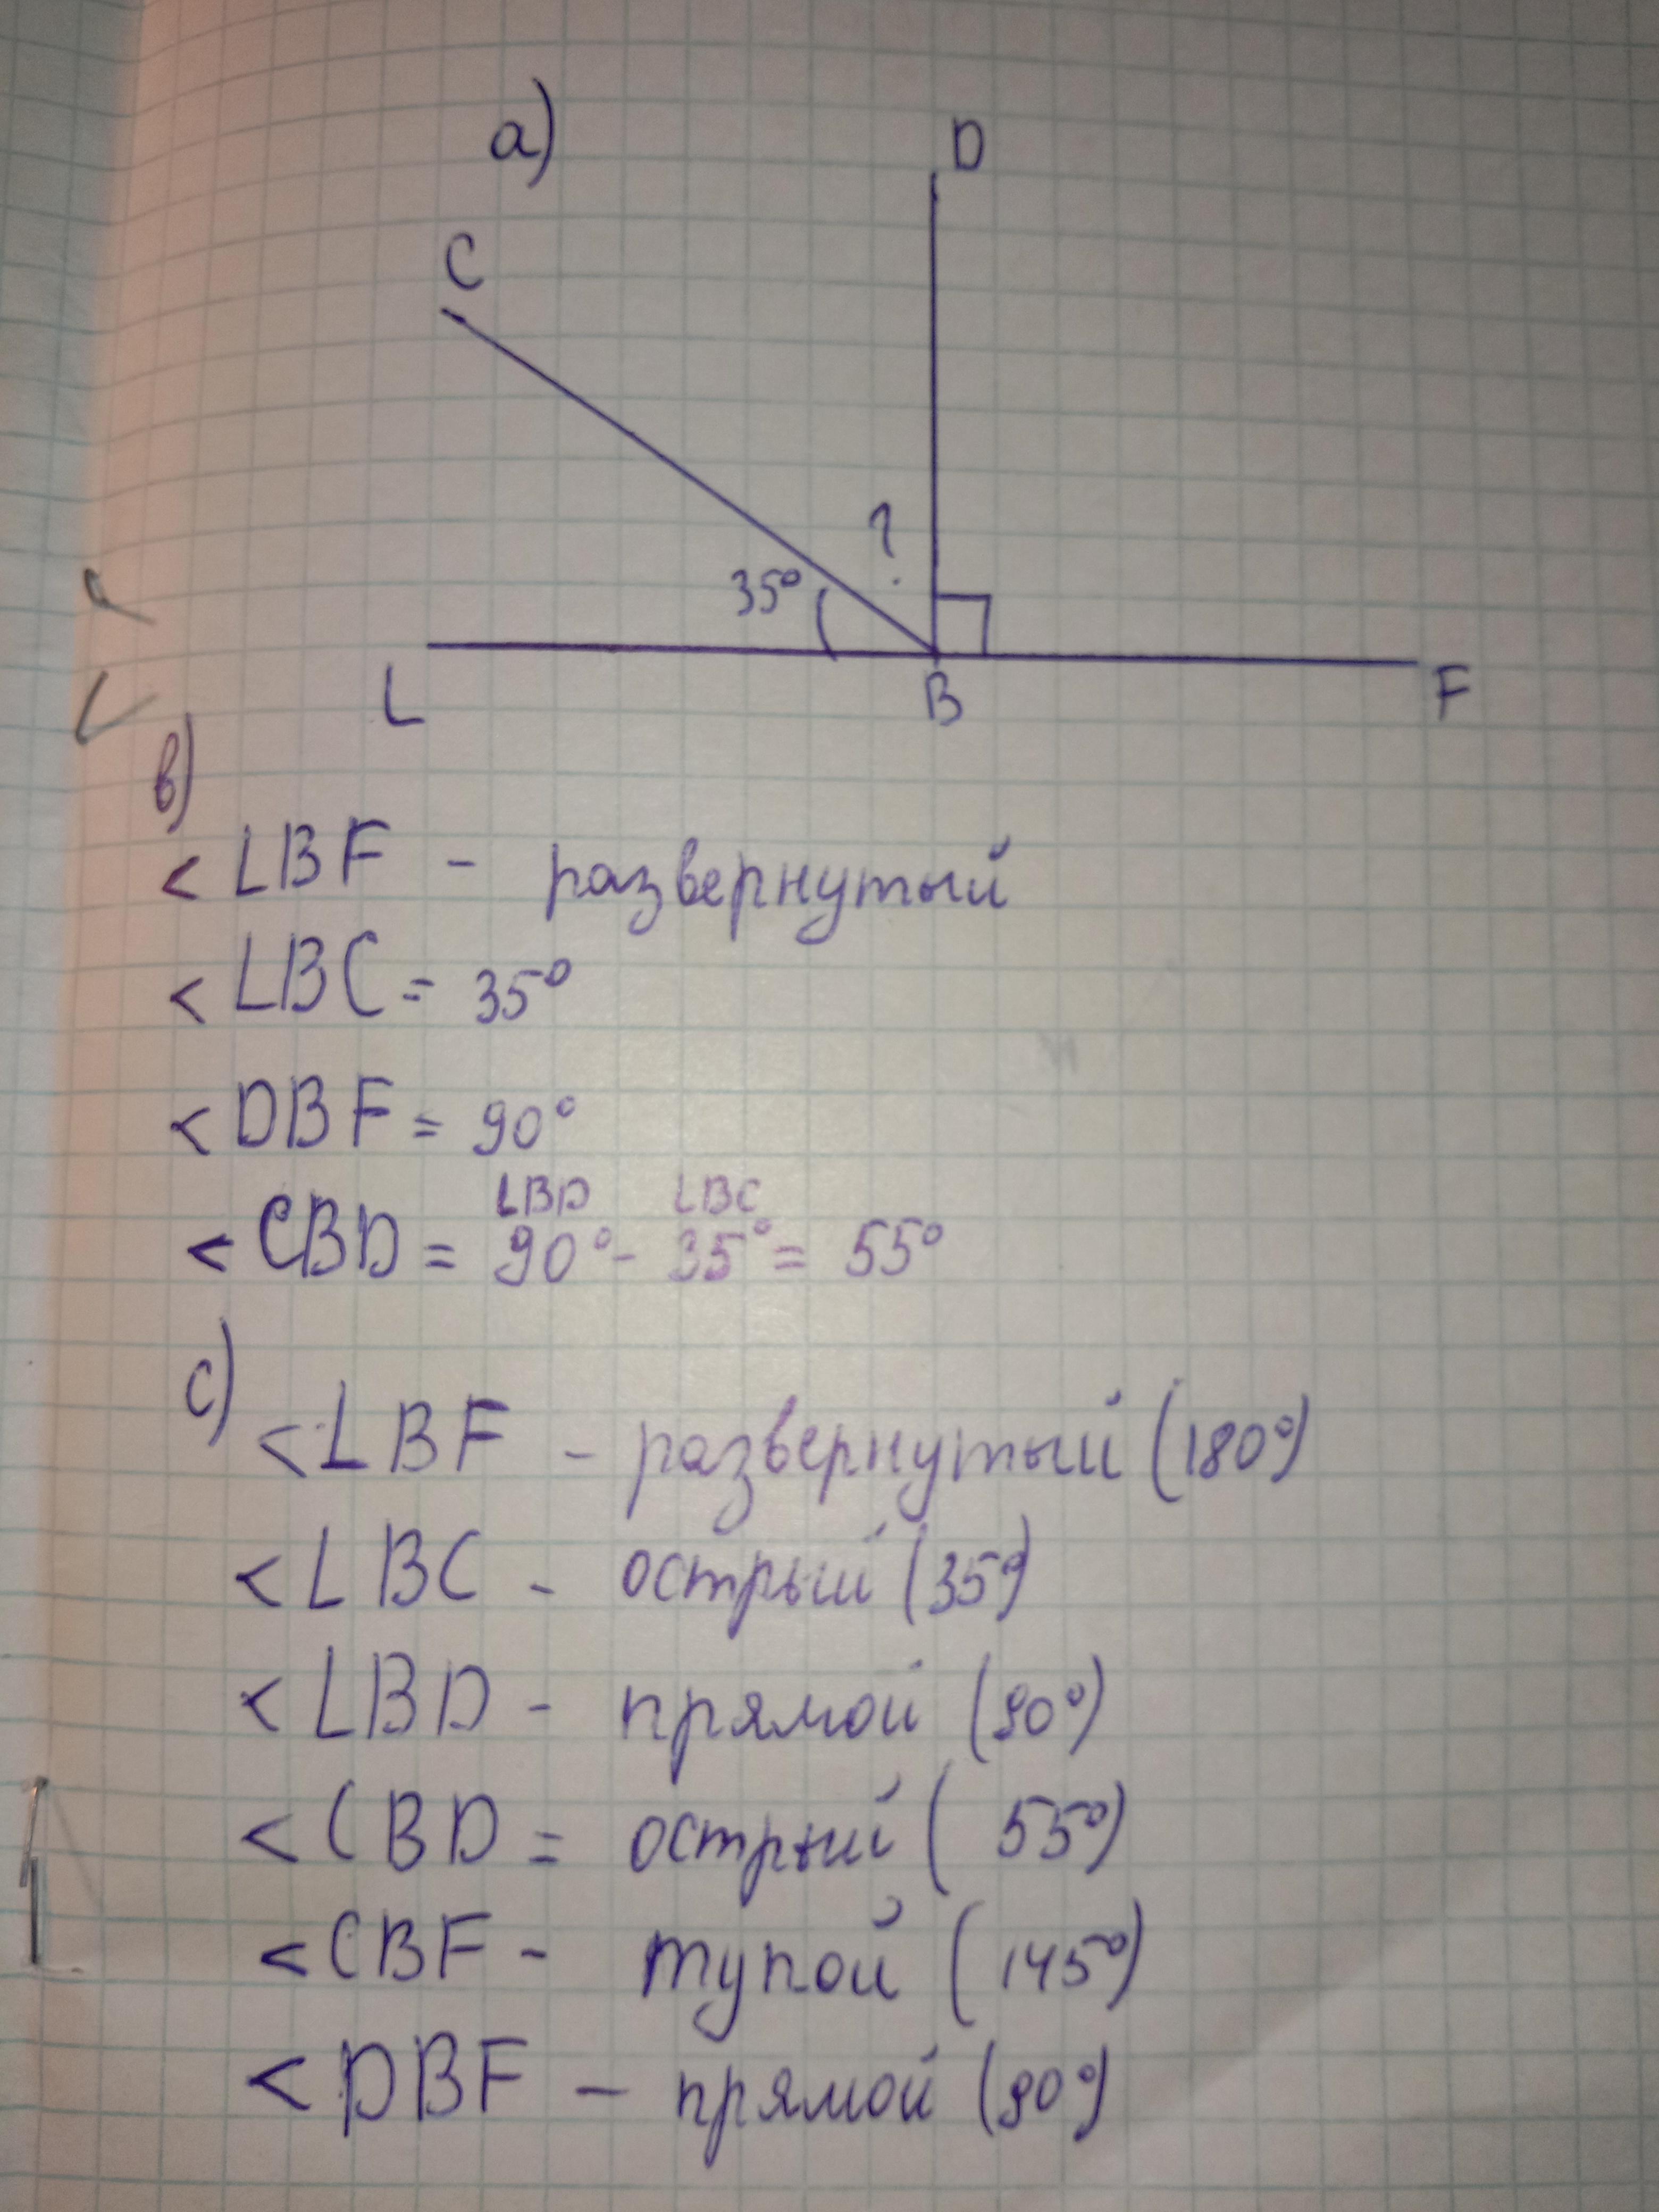 а)
D
C
?
35°
L
B
F
в)
< LBF - развернутый
< LBC = 35°
< DBF = 90°
LBD LBC
< CBD = 90° - 35° = 55°
с)
< LBF - развернутый (180°)
< LBC - острый (35°)
< LBD - прямой (90°)
< CBD = острый ( 55°)
< CBF - тупой (145°)
< DBF - прямой (90°)